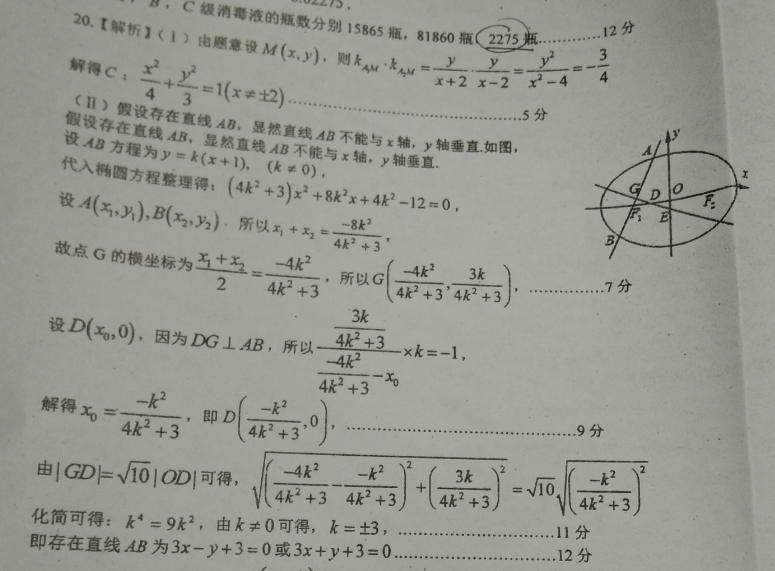 B，C 级消毒液的瓶数分别 15865 瓶，81860 瓶，2275 瓶............12 分
20.【解析】(Ⅰ) 由题意设 M(x,y)，则 k_{A₁M}·k_{A₂M} = y/(x+2) · y/(x−2) = y²/(x²−4) = −3/4
解得 C：x²/4 + y²/3 = 1(x≠±2)............5 分
(Ⅱ) 假设存在直线 AB，显然直线 AB 不能与 x 轴，y 轴垂直.如图，
假设存在直线 AB，显然直线 AB 不能与 x 轴，y 轴垂直.
设 AB 方程为 y = k(x+1)，(k≠0)，
代入椭圆方程整理得：(4k²+3)x²+8k²x+4k²−12=0，
设 A(x₁,y₁),B(x₂,y₂)．所以 x₁+x₂ = −8k²/(4k²+3)，
故点 G 的横坐标为 (x₁+x₂)/2 = −4k²/(4k²+3)，所以 G(−4k²/(4k²+3), 3k/(4k²+3))，............7 分
设 D(x₀,0)，因为 DG⊥AB，所以 (3k/(4k²+3))/(−4k²/(4k²+3) − x₀) ×k=−1，
解得 x₀ = −k²/(4k²+3)，即 D(−k²/(4k²+3),0)，............9 分
由|GD|=√10|OD|可得，√((−4k²/(4k²+3) − −k²/(4k²+3))² + (3k/(4k²+3))²) = √10 √((−k²/(4k²+3))²)
化简可得：k⁴=9k²，由 k≠0 可得，k=±3，............11 分
即存在直线 AB 为 3x−y+3=0 或 3x+y+3=0............12 分
y
A
x
G
D
O
F₂
F₁
E
B